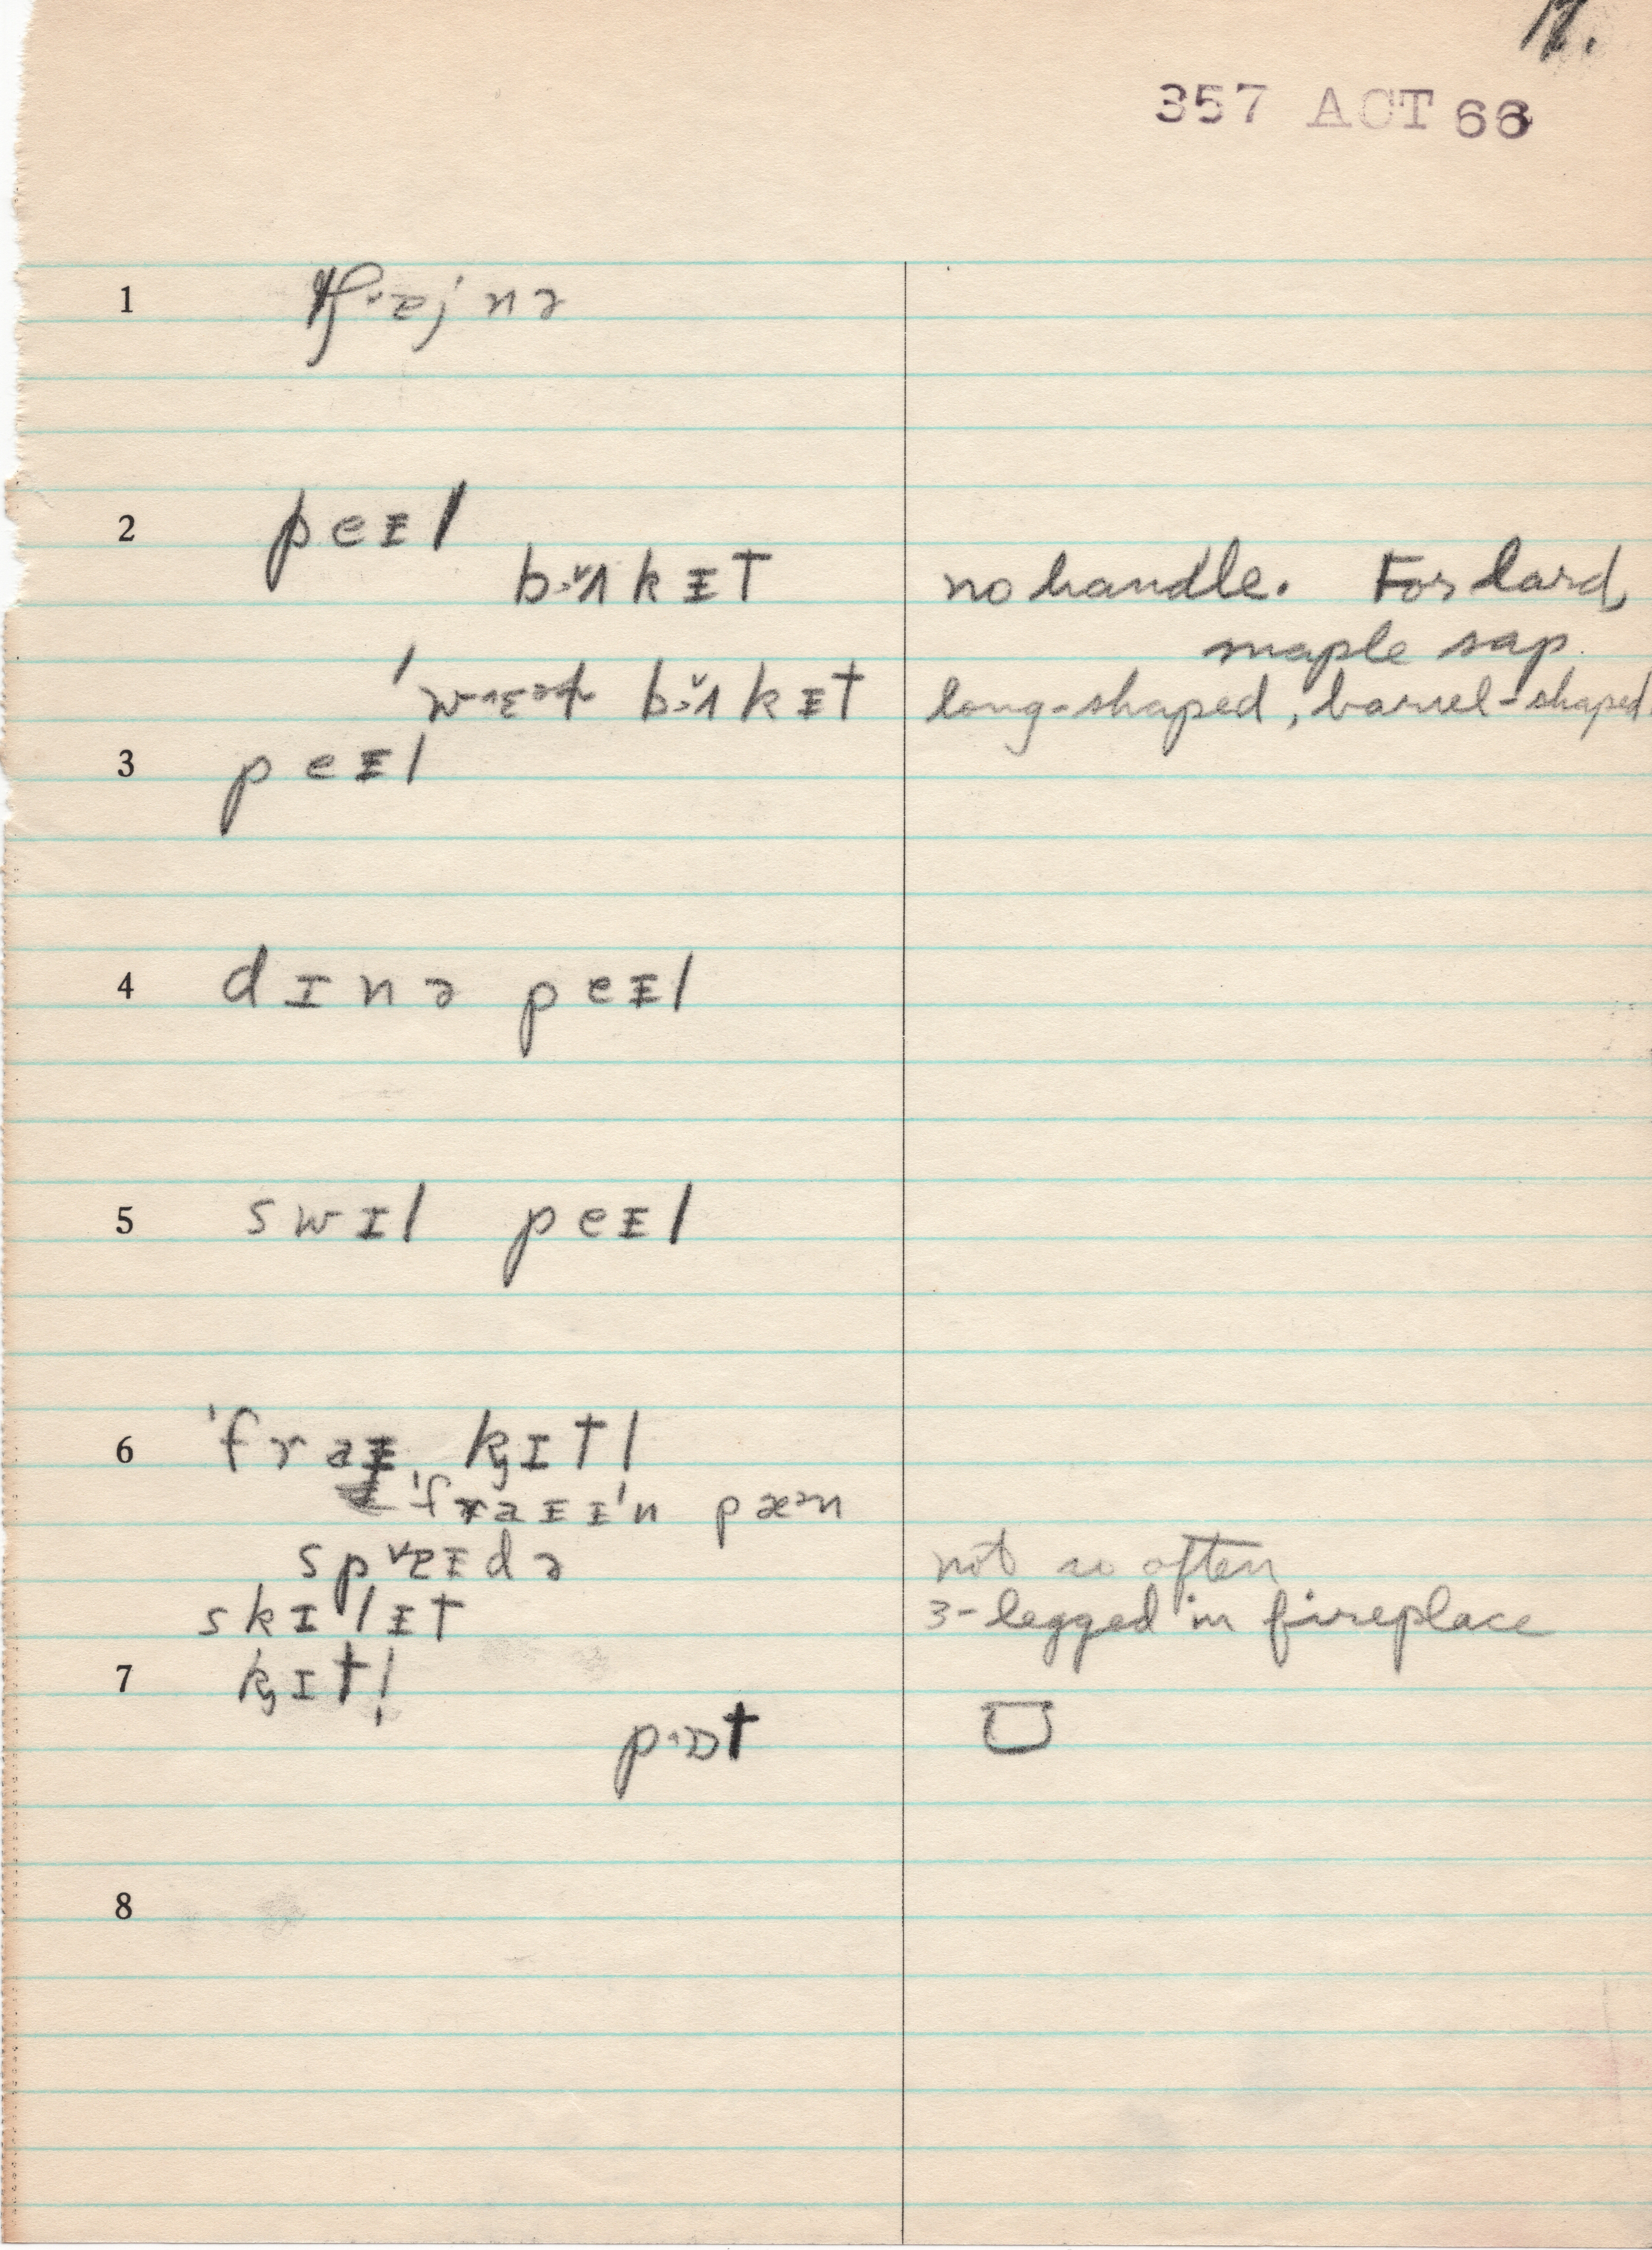 17.
357 ACT 66
1 tʃᵛaj nə
2 peᵻl
b>ᵛʌkᵻt no handle. For lard,
maple sap.
ˈwɛət bᵛʌkᵻt long-shaped, barrel-shaped.
3 peᵻl
4 dɪnə peᵻl
5 swɪl peᵻl
6 ˈfraᵻ kɪtl
ˈfraᵻᵻˈn pæən
spᵛɐᵻdə not so often
skɪlᵻt 3-legged in fireplace
7 kɪtl̩
pɒt
8